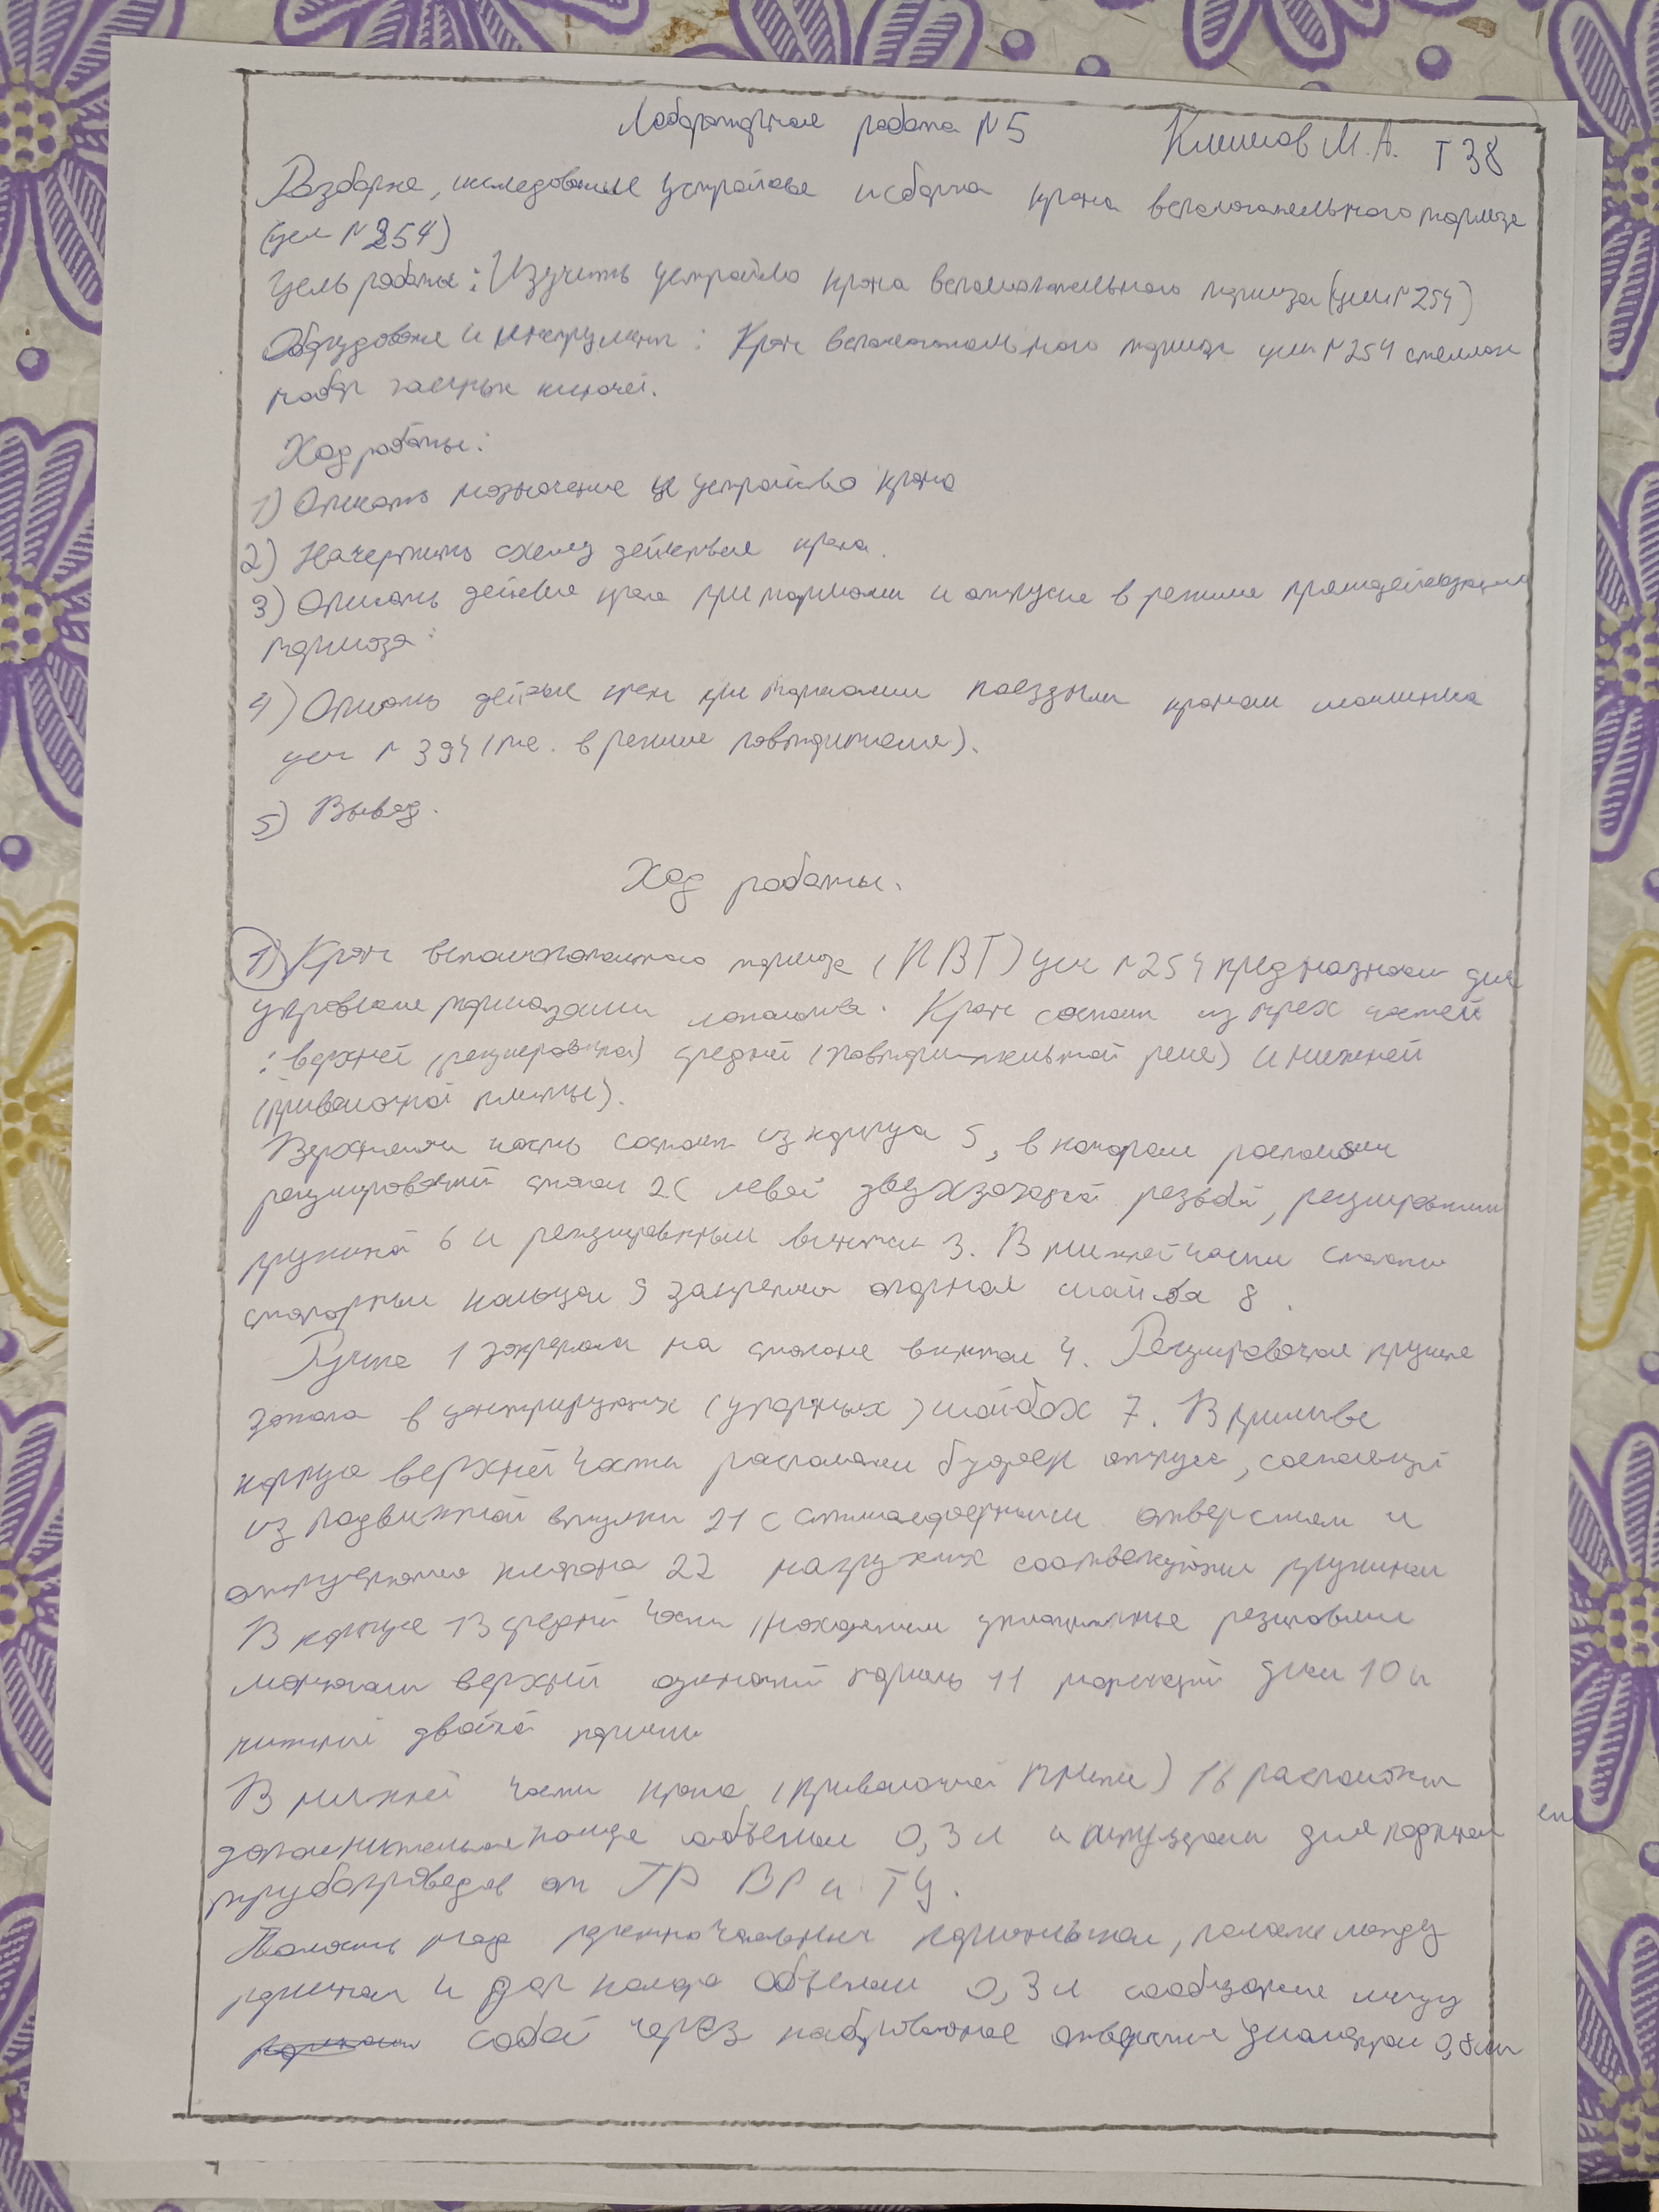 Лабораторная работа №5 Климов М.А. Т38
Разборка, исследование устройства и сборка крана вспомогательного тормоза
(усл №254)
Цель работы: Изучить устройство крана вспомогательного тормоза (усл №254)
Оборудование и инструмент: Кран вспомогательного тормоза усл №254 стеллаж
набор гаечных ключей.
Ход работы:
1) Описать назначение и устройство крана
2) Начертить схему действия крана.
3) Описать действие крана при торможении и отпуске в режиме прямодействующего
тормоза:
4) Описать действие крана при торможении поездным краном машиниста
усл №394 (т.е. в режиме повторителя).
5) Вывод.
Ход работы.
1) Кран вспомогательного тормоза (КВТ) усл №254 предназначен для
управления тормозами локомотива. Кран состоит из трех частей
: верхней (регулировочной) средней (повторительной реле) и нижней
(привалочной плиты).
Верхняя часть состоит из корпуса 5, в котором расположен
регулировочный стакан 2 с левой двухзаходной резьбой, регулировочной
пружиной 6 и регулировочным винтом 3. В нижней части стакана
стопорным кольцом 9 закреплена опорная шайба 8.
Ручка 1 закреплена на стакане винтом 4. Регулировочная пружина
зажата в центрирующих (упорных) шайбах 7. В приливе
корпуса верхней части расположен буфер отпуска, состоящий
из подвижной втулки 21 с атмосферными отверстием и
отпускного клапана 22 нагруженных соответствующими пружинами
В корпусе 13 средней части находятся уплотненные резиновыми
манжетами верхний одиночный поршень 11 диски 10 и
нижний двойной поршень
В нижней части крана (привалочной плите) 16 расположена
дополнительная камера объемом 0,3 л и штуцеры для подключения
трубопроводов от ГР ВР и ТЦ.
Полость над поршнем, полость между
поршнями и доп камера объемом 0,3 л сообщены между
собой через калиброванное отверстие диаметром 0,8 мм